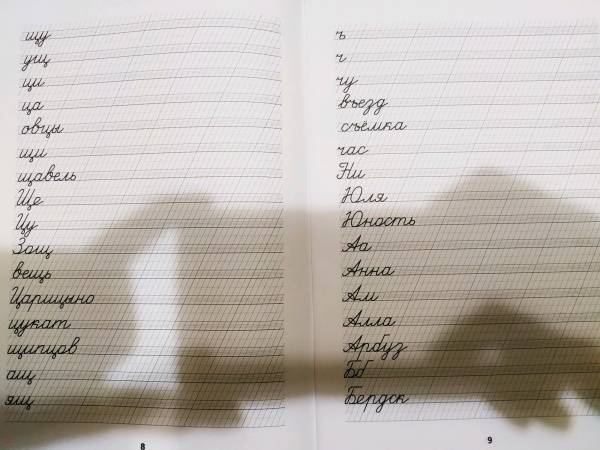 щу
ущ
щи
ца
овцы
щи
щавель
Ще
Цу
Защ
вещь
Царицыно
цукат
щипцов
ащ
ящ
8
ъ
ч
чу
въезд
съёмка
час
Ни
Юля
Юность
Аа
Анна
Ам
Алла
Арбуз
Бб
Бердск
9